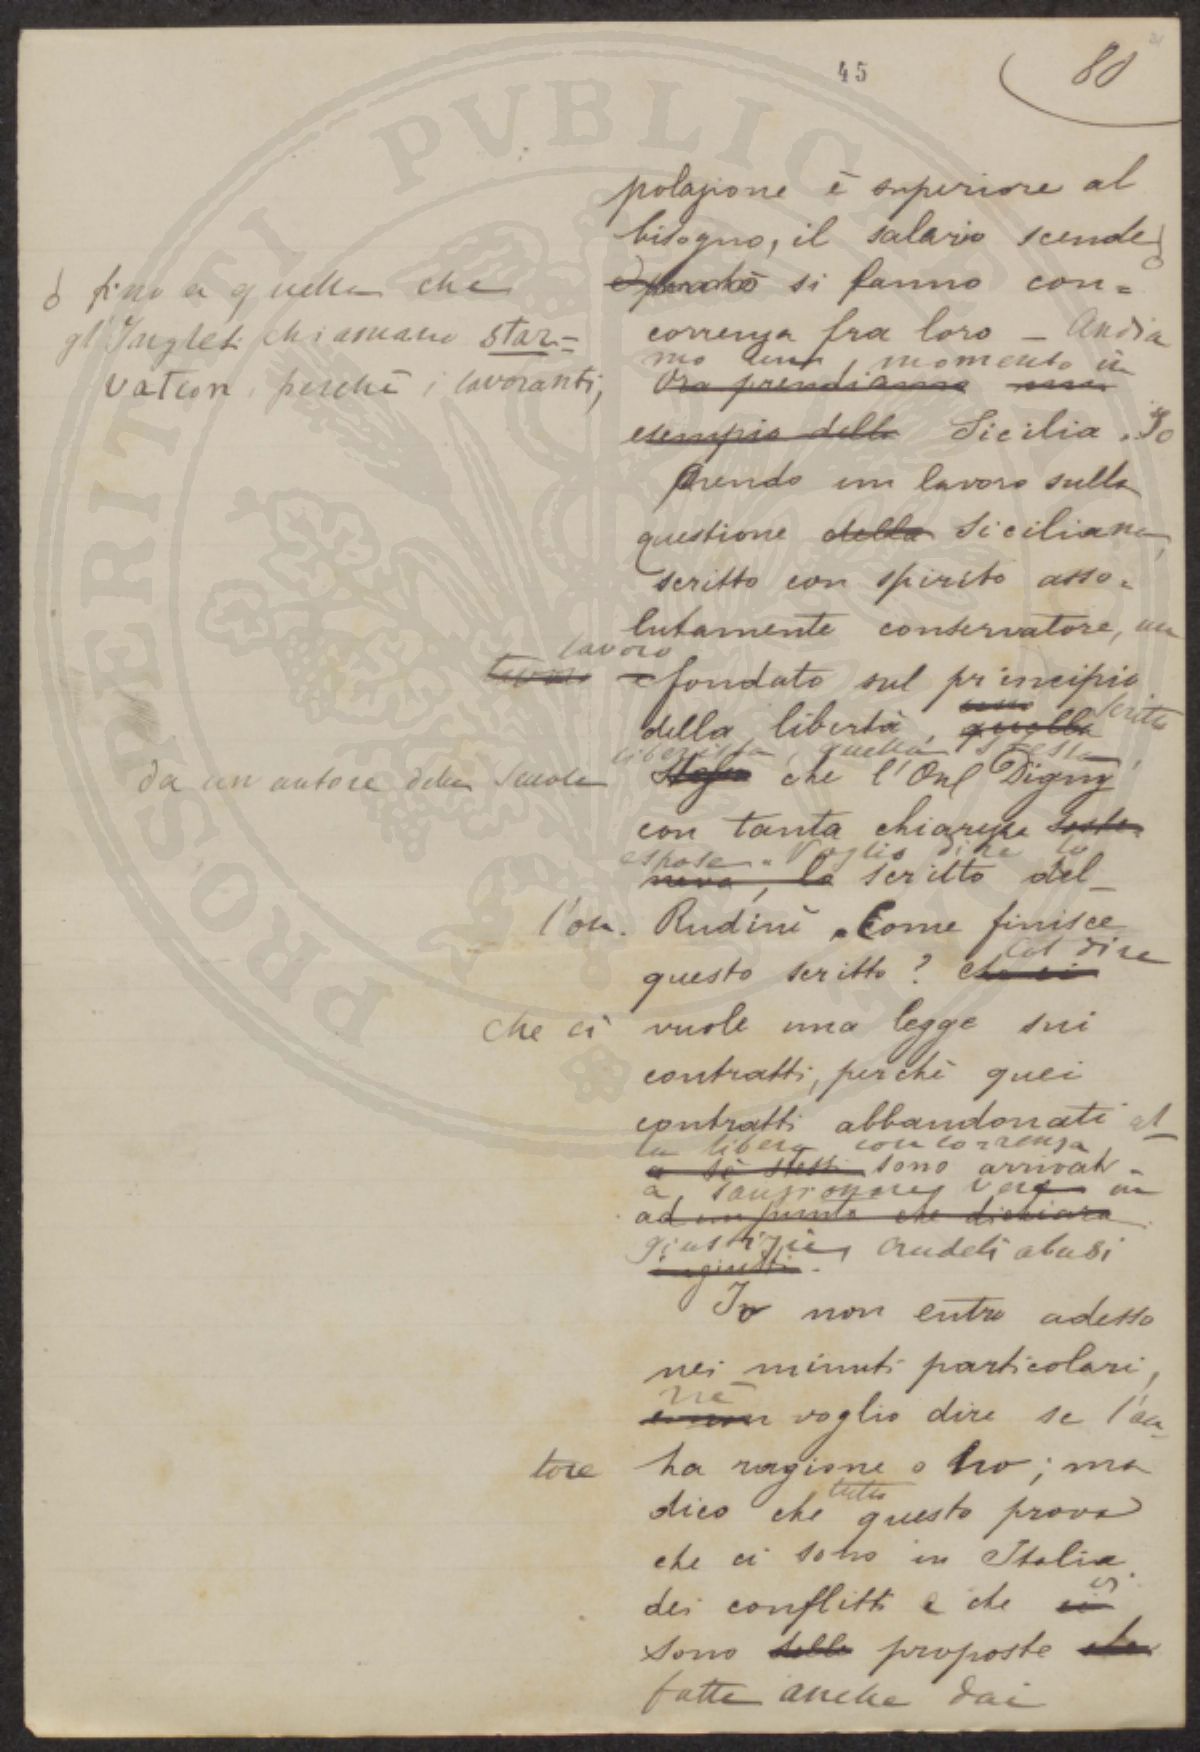 45
80
polazione è superiore al
bisogno, il salario scende
fino a quella che
gl'Inglesi chiamano star=
vation, perchè i lavoranti,
si fanno con=
correnza fra loro — Andia
mo un momento in
Ora prendiamo
esempio della Sicilia. Io
prendo un lavoro sulla
questione della Siciliana,
scritto con spirito asso=
lutamente conservatore, un
lavoro
e fondato sul principio
della libertà, quella scritto
da un autore della scuola
liberista, quella stessa,
che l'Onl Digny
con tanta chiarezza soste-
espose. Voglio dire lo
neva, lo scritto del-
l'on. Rudinì. Come finisce
questo scritto? Col dire
che ci
che ci vuole una legge sui
contratti, perchè quei
contratti abbandonati al
la libera concorrenza
a sè stessi sono arrivati
a sanzionare vere in
ad un punto che dichiara
giustizie, crudeli abusi
ingiusti.
Io non entro adesso
nei minuti particolari,
nè
e non voglio dire se l'au-
tore ha ragione o no; ma
tutto
dico che questo prova
che ci sono in Italia
dei conflitti e che ci
sono delle proposte che
fatte anche dai
PROSPERITATI PVBLICAE